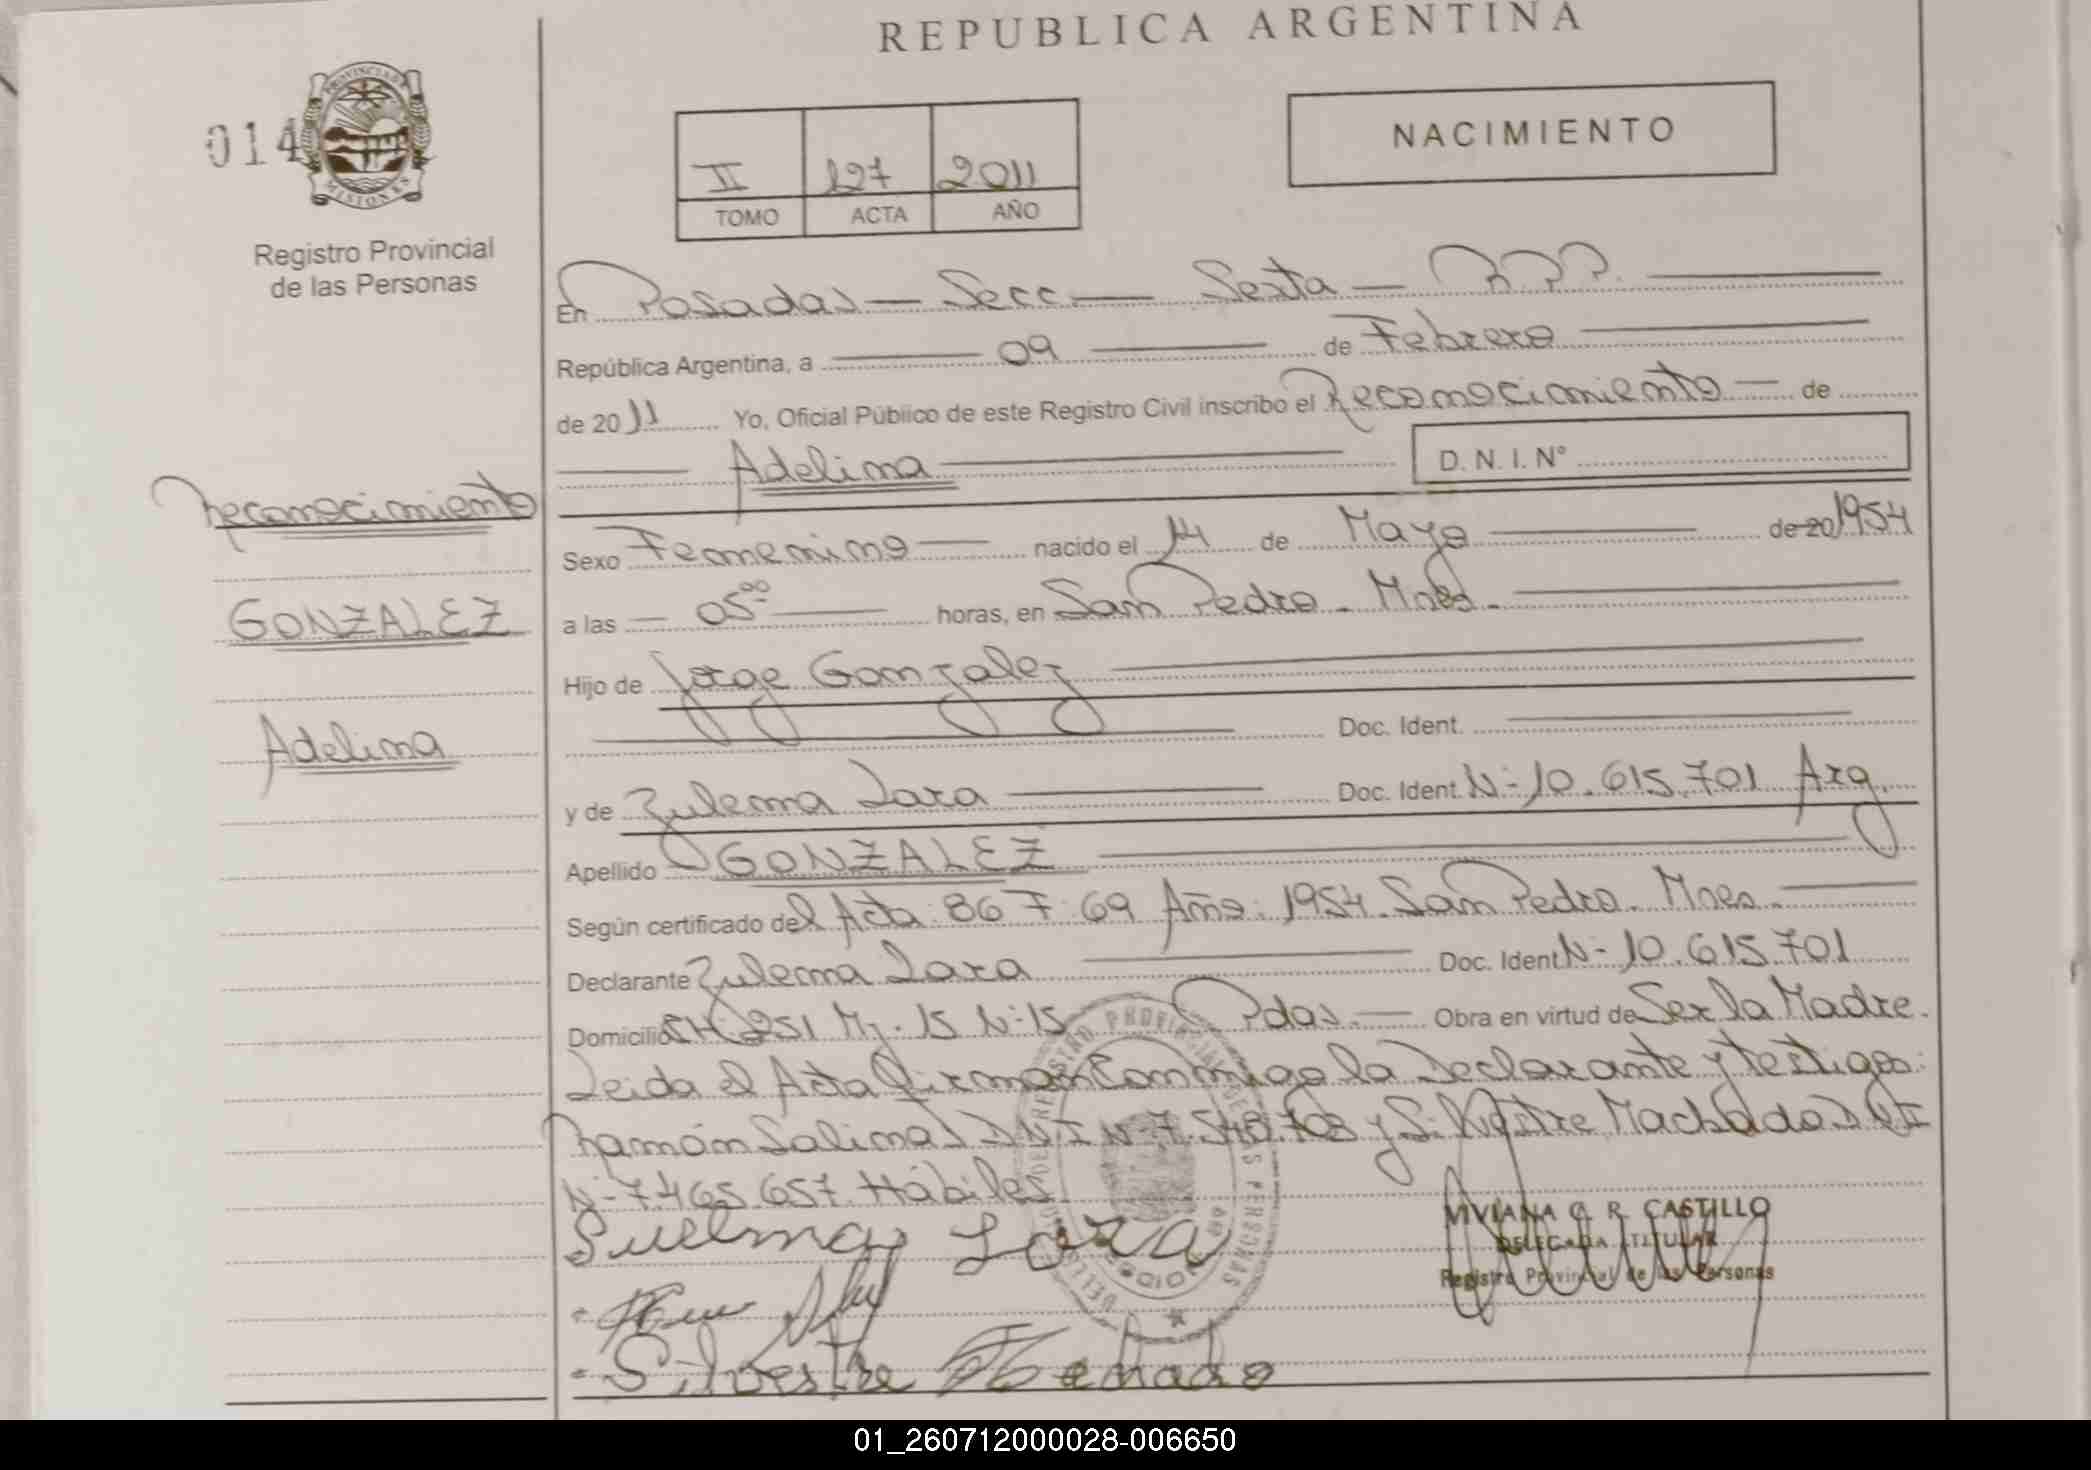 REPUBLICA ARGENTINA
014
PROVINCIA DE MISIONES
Registro Provincial
de las Personas
II 127 2011
TOMO ACTA AÑO
NACIMIENTO
En Posadas — Secc. — Sexta — R.P.P.
República Argentina, a — 09 — de Febrero
de 2011 Yo, Oficial Público de este Registro Civil inscribo el Reconocimiento — de
— Adelina — D. N. I. N°
Reconocimiento
GONZALEZ
Adelina
Sexo Femenino — nacido el 14 de Mayo — de 20 1954
a las — 05⁰⁰ — horas, en San Pedro - Mnes. —
Hijo de Jorge Gonzalez —
— Doc. Ident. —
y de Zulema Lara — Doc. Ident. N- 10.615.701 Arg.
Apellido GONZALEZ —
Según certificado del Acta: 86 F: 69 Año: 1954. San Pedro. Mnes. —
Declarante Zulema Lara — Doc. Ident N- 10.615.701
Domicilio CH: 251 Mz. 15 N-15 Pdas. — Obra en virtud de Ser la Madre.
Leida el Acta firman Conmigo la Declarante y testigos:
Ramón Salinas D.N.I N- 7.548.708 y Silvestre Machado D.N.I
N- 7.465.657. Hábiles.
Suelma Lara
VIVIANA G. R. CASTILLO
DELEGADA TITULAR
Registro Provincial de las Personas
Silvestre Machado
REGISTRO PROVINCIAL DE LAS PERSONAS
01_260712000028-006650